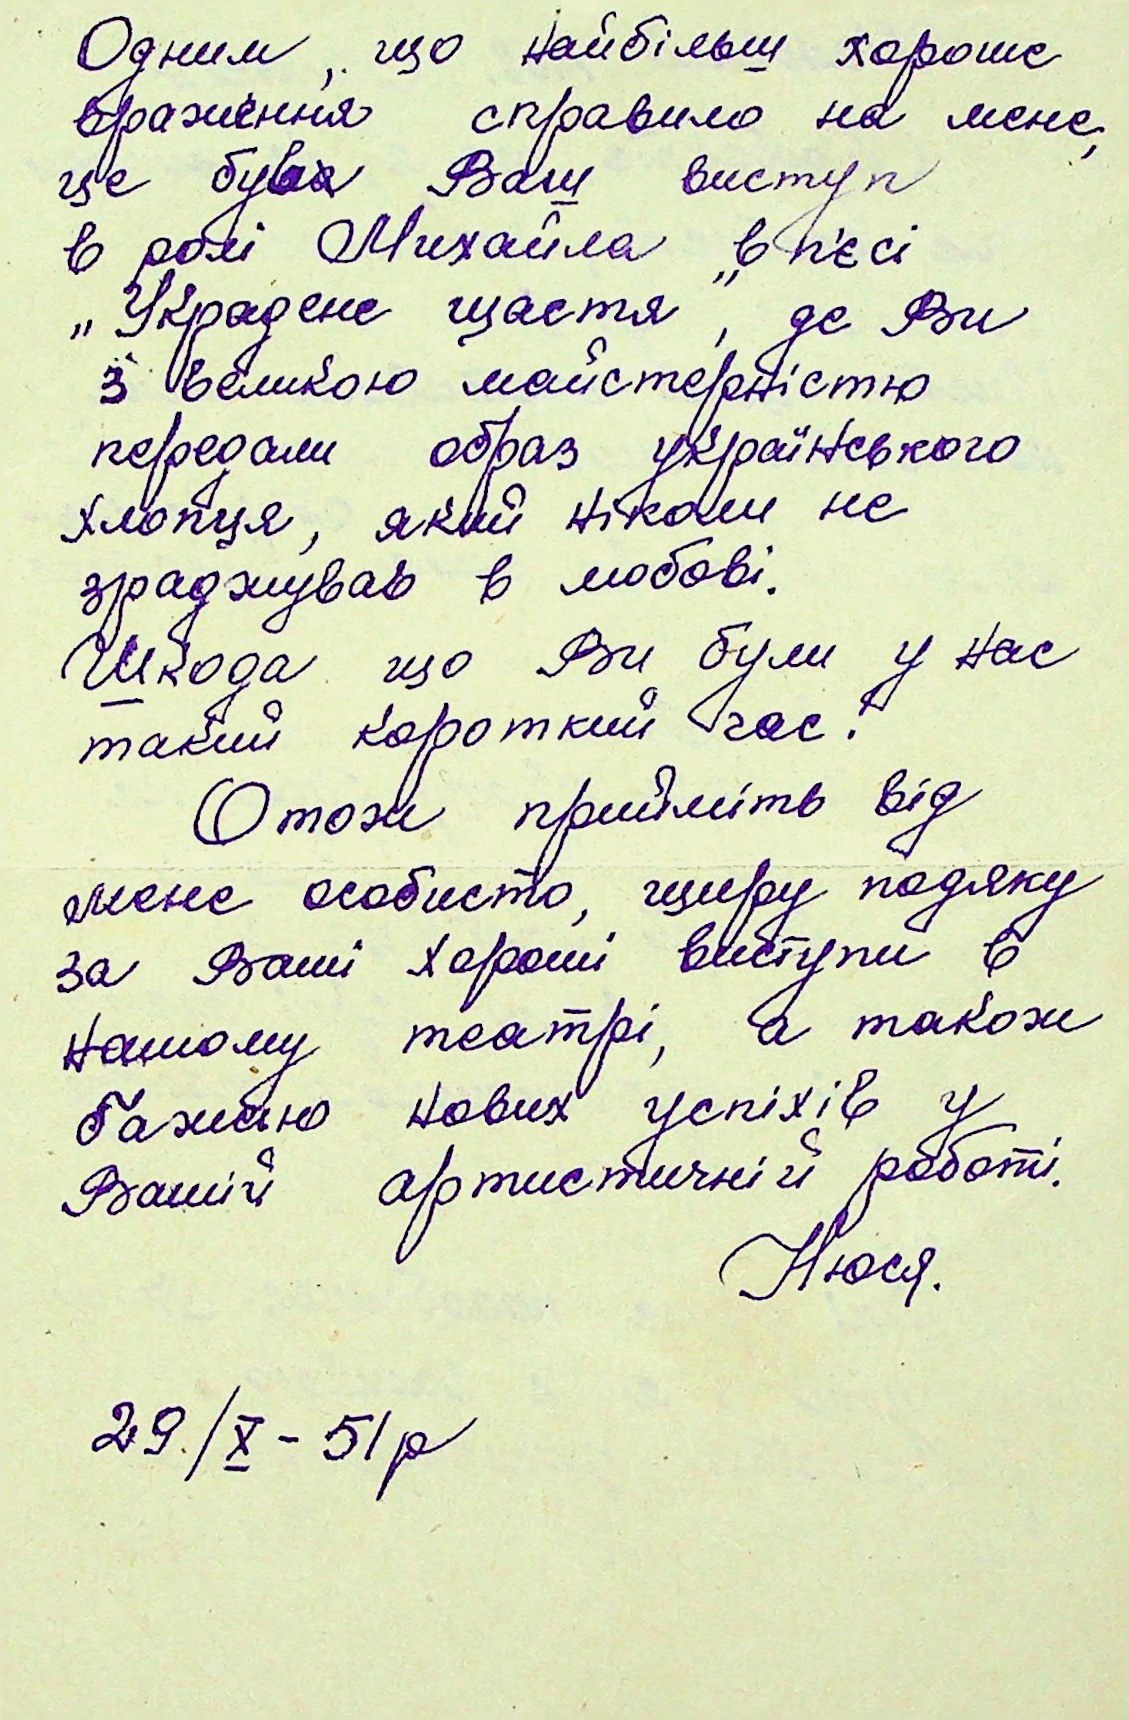 Одним, що найбільш хороше
враження справило на мене,
це був Ваш виступ
в ролі Михайла в п'єсі
„Украдене щастя", де Ви
з великою майстерністю
передали образ українського
хлопця, який ніколи не
зраджував в любові.
Шкода що Ви були у нас
такий короткий час!
Отож прийміть від
мене особисто, щиру подяку
за Ваші хороші виступи в
нашому театрі, а також
бажаю нових успіхів у
Вашій артистичній роботі.
Нюся.
29/X - 51 р